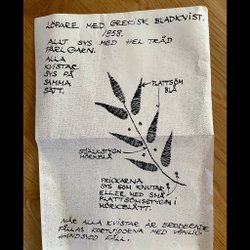 LÖPARE MED GREKISK BLADKVIST.
1958.
ALLT SYS MED HEL TRÅD
PÄRLGARN.
ALLA
KVISTAR
SYS PÅ
SAMMA
SÄTT.
PLATTSÖM
BLÅ
STJÄLKSTYGN
MÖRKBLÅ
PRICKARNA
SYS SOM KNUTAR
ELLER MED SMÅ
PLATTSÖMSSTYGN I
MÖRKBLÅTT.
NÄR ALLA KVISTAR ÄR BRODERADE
FÅLLAS KORTSIDORNA MED VANLIG
HANDSYDD FÅLL.